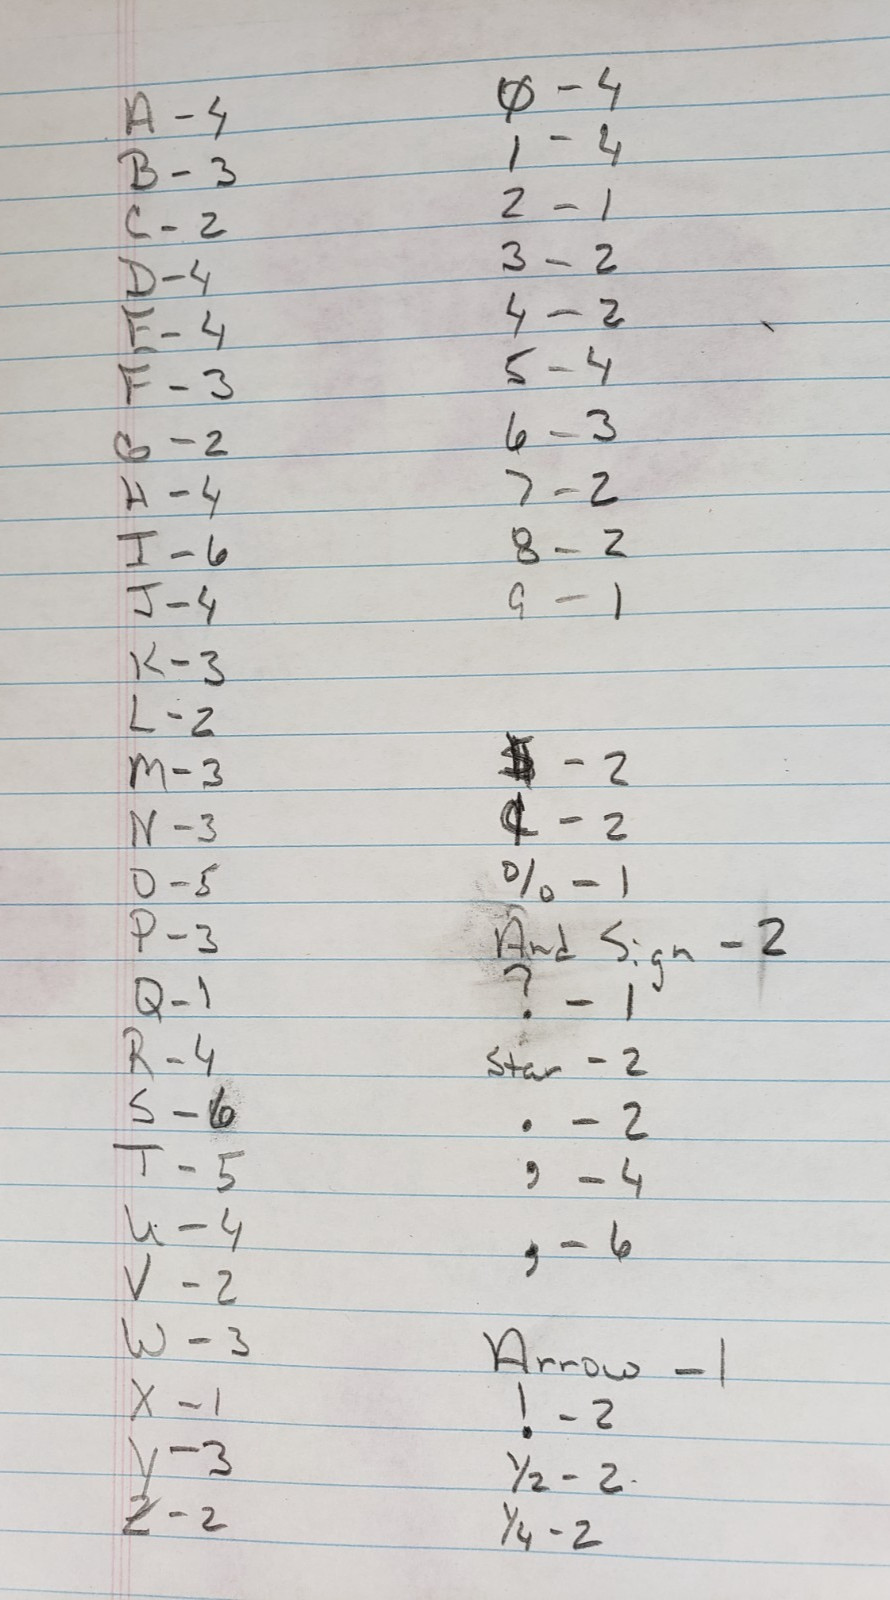 A - 4
B - 3
C - 2
D - 4
E - 4
F - 3
G - 2
H - 4
I - 6
J - 4
K - 3
L - 2
M - 3
N - 3
O - 5
P - 3
Q - 1
R - 4
S - 6
T - 5
U - 4
V - 2
W - 3
X - 1
Y - 3
Z - 2
0 - 4
1 - 4
2 - 1
3 - 2
4 - 2
5 - 4
6 - 3
7 - 2
8 - 2
9 - 1
$ - 2
¢ - 2
% - 1
And Sign - 2
? - 1
Star - 2
. - 2
’ - 4
, - 6
Arrow - 1
! - 2
1/2 - 2
1/4 - 2